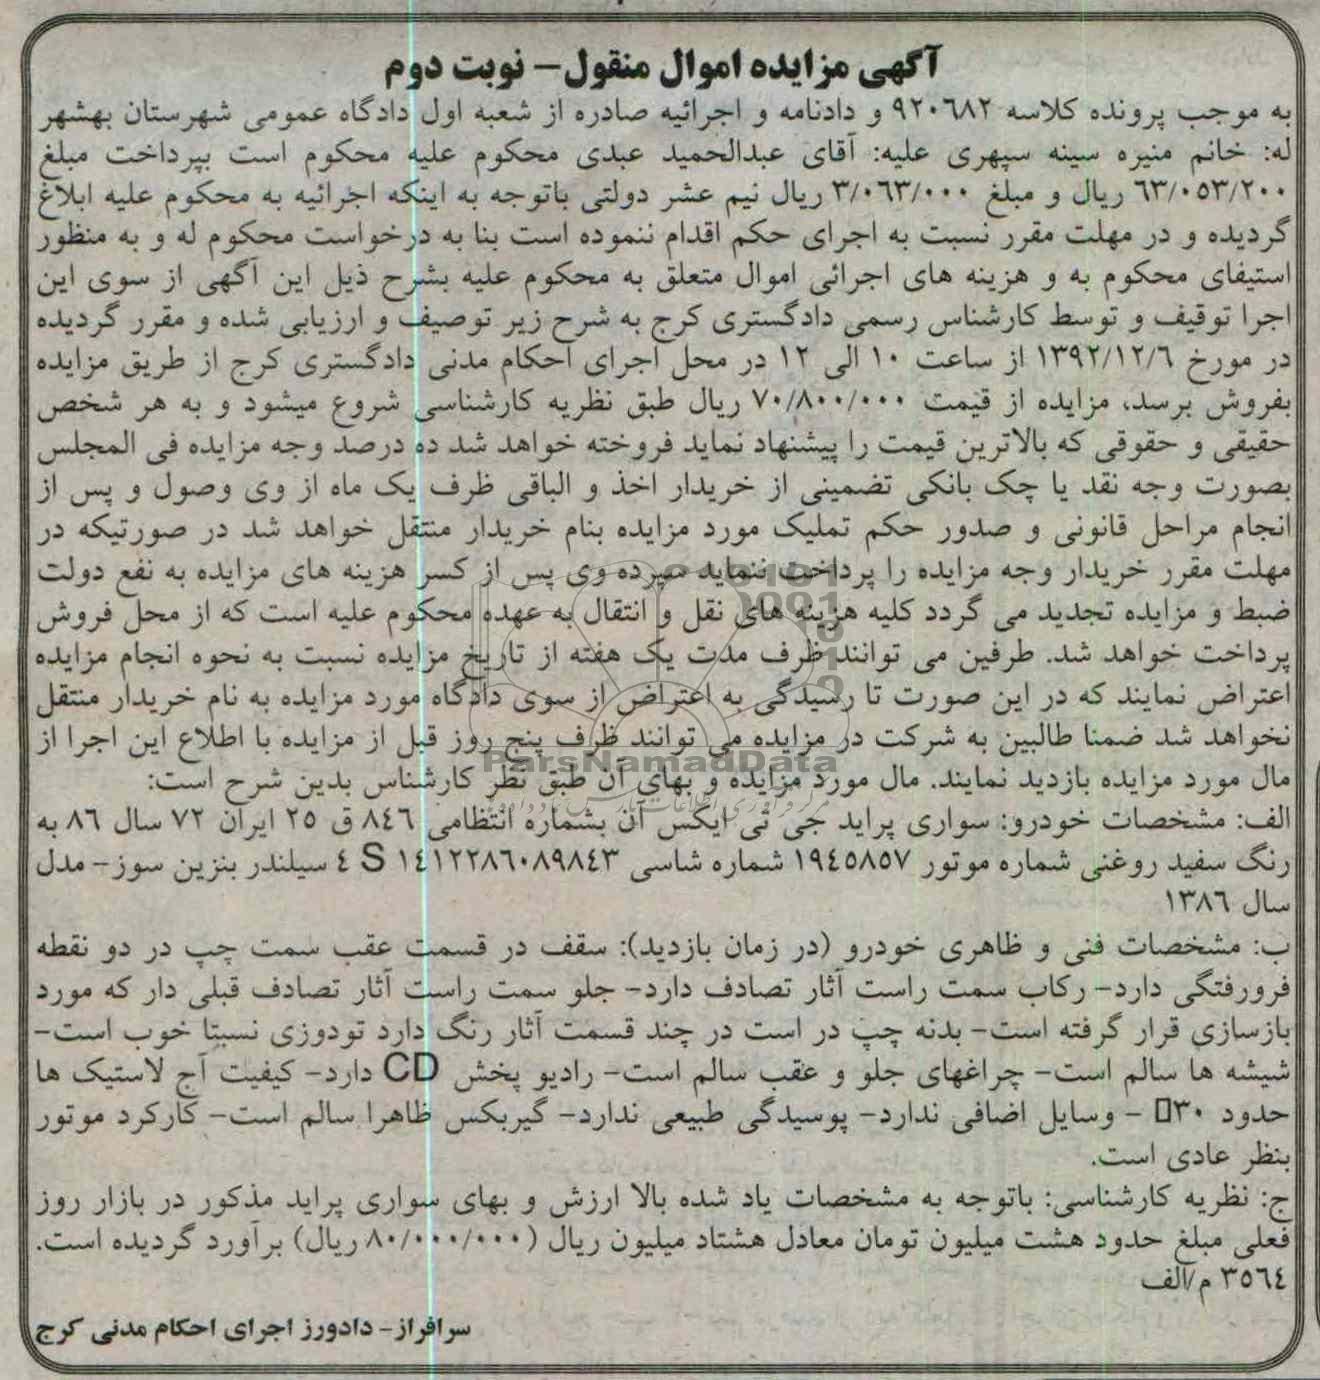 آگهی مزایده اموال منقول– نوبت دوم
به موجب پرونده کلاسه ۹۲۰٦۸۲ و دادنامه و اجرائیه صادره از شعبه اول دادگاه عمومی شهرستان بهشهر
له: خانم منیره سینه سپهری علیه: آقای عبدالحمید عبدی محکوم علیه محکوم است بپرداخت مبلغ
٦۳/۰۵۳/۲۰۰ ریال و مبلغ ۳/۰٦۳/۰۰۰ ریال نیم عشر دولتی باتوجه به اینکه اجرائیه به محکوم علیه ابلاغ
گردیده و در مهلت مقرر نسبت به اجرای حکم اقدام ننموده است بنا به درخواست محکوم له و به منظور
استیفای محکوم به و هزینه های اجرائی اموال متعلق به محکوم علیه بشرح ذیل این آگهی از سوی این
اجرا توقیف و توسط کارشناس رسمی دادگستری کرج به شرح زیر توصیف و ارزیابی شده و مقرر گردیده
در مورخ ۱۳۹۲/۱۲/٦ از ساعت ۱۰ الی ۱۲ در محل اجرای احکام مدنی دادگستری کرج از طریق مزایده
بفروش برسد، مزایده از قیمت ۷۰/۸۰۰/۰۰۰ ریال طبق نظریه کارشناسی شروع میشود و به هر شخص
حقیقی و حقوقی که بالاترین قیمت را پیشنهاد نماید فروخته خواهد شد ده درصد وجه مزایده فی المجلس
بصورت وجه نقد یا چک بانکی تضمینی از خریدار اخذ و الباقی ظرف یک ماه از وی وصول و پس از
انجام مراحل قانونی و صدور حکم تملیک مورد مزایده بنام خریدار منتقل خواهد شد در صورتیکه در
مهلت مقرر خریدار وجه مزایده را پرداخت ننماید سپرده وی پس از کسر هزینه های مزایده به نفع دولت
ضبط و مزایده تجدید می گردد کلیه هزینه های نقل و انتقال به عهده محکوم علیه است که از محل فروش
پرداخت خواهد شد. طرفین می توانند ظرف مدت یک هفته از تاریخ مزایده نسبت به نحوه انجام مزایده
اعتراض نمایند که در این صورت تا رسیدگی به اعتراض از سوی دادگاه مورد مزایده به نام خریدار منتقل
نخواهد شد ضمنا طالبین به شرکت در مزایده می توانند ظرف پنج روز قبل از مزایده با اطلاع این اجرا از
ParsNamadData
مال مورد مزایده بازدید نمایند. مال مورد مزایده و بهای آن طبق نظر کارشناس بدین شرح است:
الف: مشخصات خودرو: سواری پراید جی تی ایکس آن بشماره انتظامی ۸٤٦ ق ۲۵ ایران ۷۲ سال ۸٦ به
رنگ سفید روغنی شماره موتور ۱۹٤۵۸۵۷ شماره شاسی S ۱٤۱۲۲۸٦۰۸۹۸٤۳ ٤ سیلندر بنزین سوز– مدل
سال ۱۳۸٦
ب: مشخصات فنی و ظاهری خودرو (در زمان بازدید): سقف در قسمت عقب سمت چپ در دو نقطه
فرورفتگی دارد– رکاب سمت راست آثار تصادف دارد– جلو سمت راست آثار تصادف قبلی دار که مورد
بازسازی قرار گرفته است– بدنه چپ در است در چند قسمت آثار رنگ دارد تودوزی نسبتا خوب است–
شیشه ها سالم است– چراغهای جلو و عقب سالم است– رادیو پخش CD دارد– کیفیت آج لاستیک ها
حدود ۳۰▯ – وسایل اضافی ندارد– پوسیدگی طبیعی ندارد– گیربکس ظاهرا سالم است– کارکرد موتور
بنظر عادی است.
ج: نظریه کارشناسی: باتوجه به مشخصات یاد شده بالا ارزش و بهای سواری پراید مذکور در بازار روز
فعلی مبلغ حدود هشت میلیون تومان معادل هشتاد میلیون ریال (۸۰/۰۰۰/۰۰۰ ریال) برآورد گردیده است.
۳۵٦٤ م/الف
سرافراز– دادورز اجرای احکام مدنی کرج